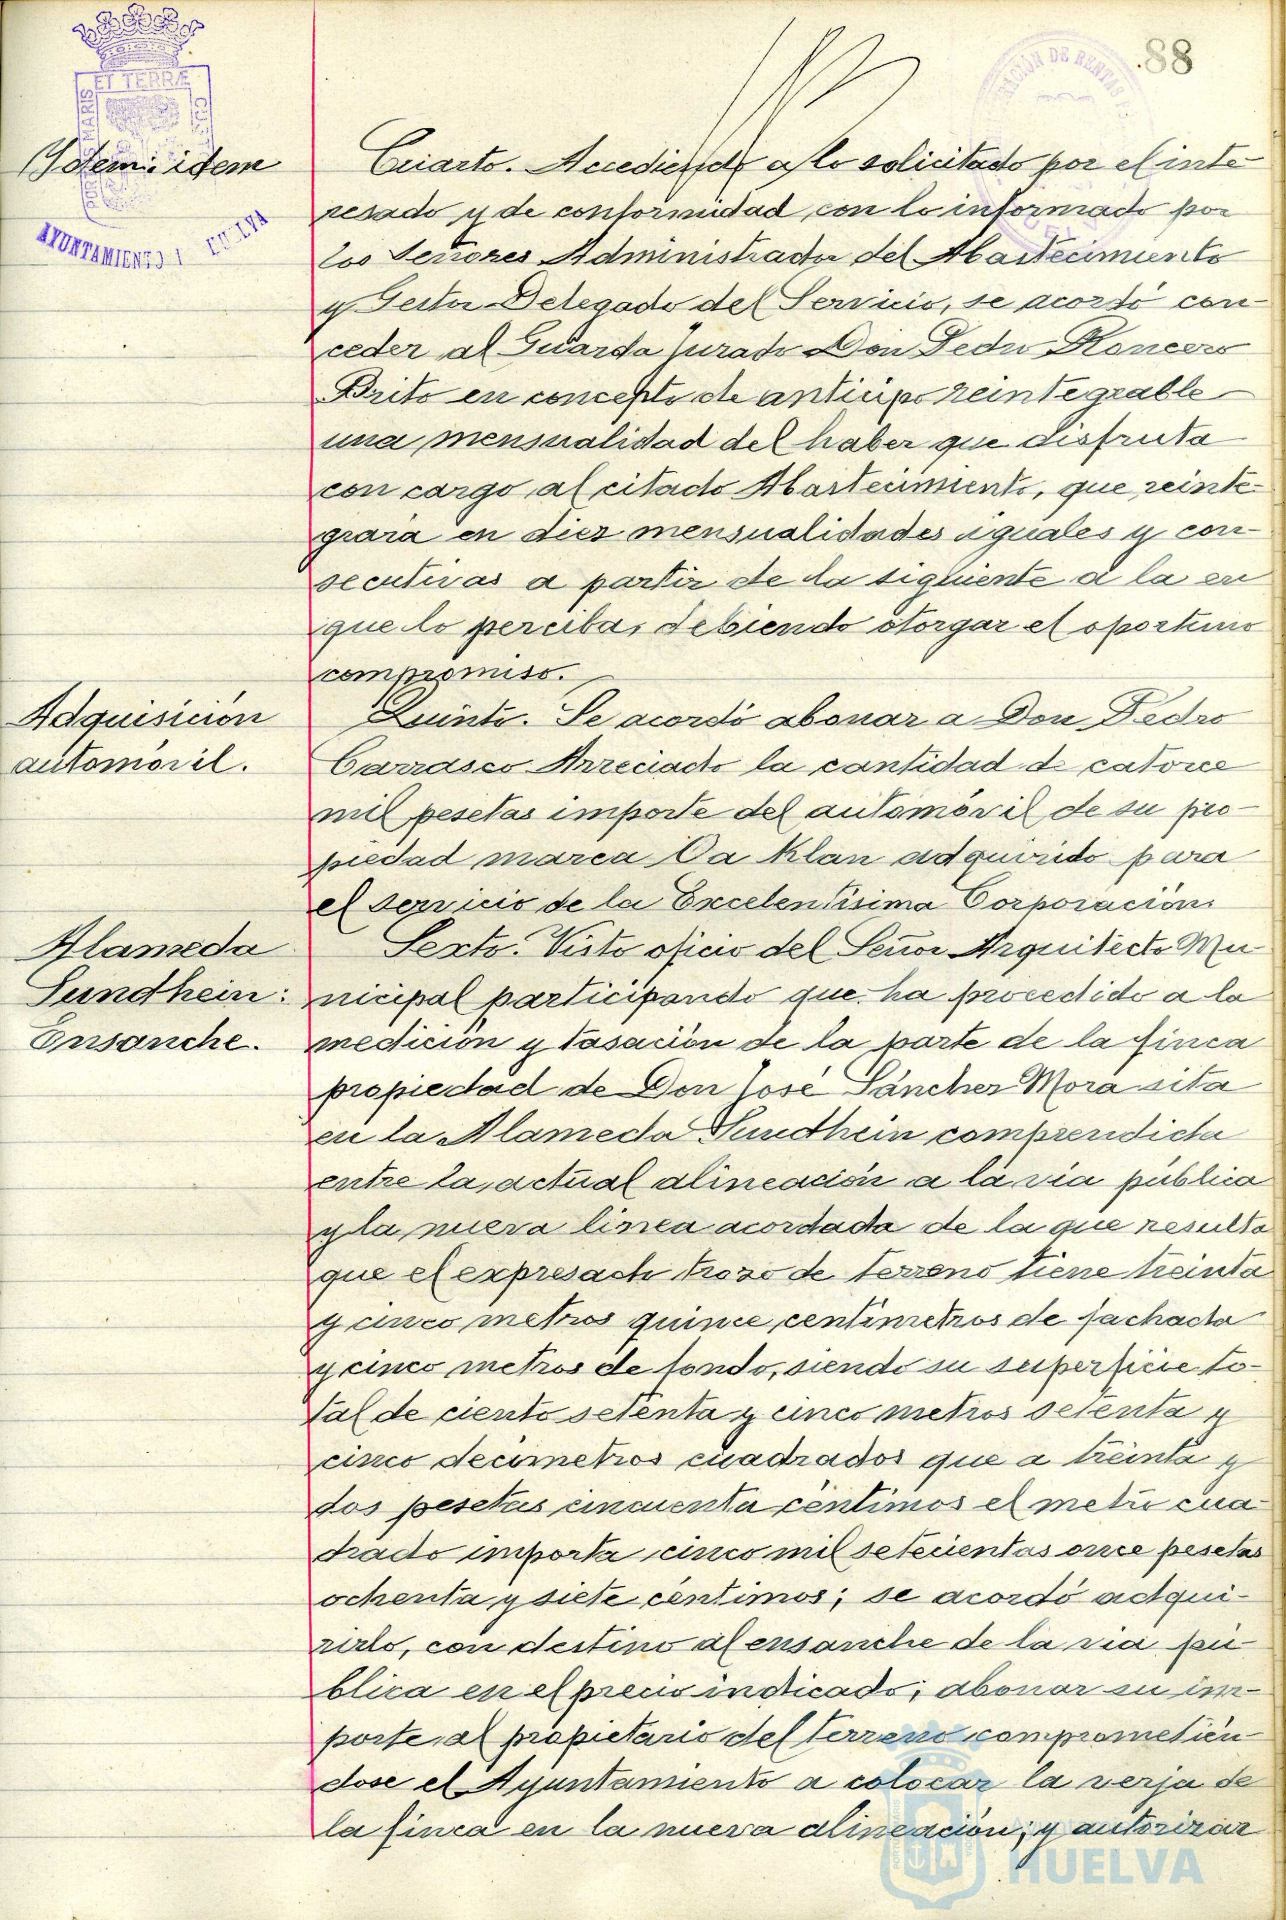 88
ET TERRÆ
MARIS
AYUNTAMIENTO
HUELVA
Ydem: idem
Cuarto. Accediendo a lo solicitado por el inte-
resado y de conformidad con lo informado por
los Señores Administrador del Abastecimiento
y Gestor Delegado del Servicio, se acordó con-
ceder al Guarda Jurado Don Pedro Roncero
Brito en concepto de anticipo reintegrable
una mensualidad del haber que disfruta
con cargo al citado Abastecimiento, que reinte-
grará en diez mensualidades iguales y con-
secutivas a partir de la siguiente a la en
que lo perciba, debiendo otorgar el oportuno
compromiso.
Adquisición
automóvil.
Quinto. Se acordó abonar a Don Pedro
Carrasco Arreciado la cantidad de catorce
mil pesetas importe del automóvil de su pro-
piedad marca Oa Klan adquirido para
el servicio de la Excelentísima Corporación.
Alameda
Sundhein:
Ensanche.
Sexto. Visto oficio del Señor Arquitecto Mu
nicipal participando que ha procedido a la
medición y tasación de la parte de la finca
propiedad de Don José Sánchez Mora sita
en la Alameda Sundhein comprendida
entre la actual alineación a la vía pública
y la nueva línea acordada de la que resulta
que el expresado trozo de terreno tiene treinta
y cinco metros quince centímetros de fachada
y cinco metros de fondo, siendo su superficie to-
tal de ciento setenta y cinco metros setenta y
cinco decímetros cuadrados que a treinta y
dos pesetas cincuenta céntimos el metro cua-
drado importa cinco mil setecientas once pesetas
ochenta y siete céntimos; se acordó adqui-
rirlo, con destino al ensanche de la vía pú
blica en el precio indicado; abonar su im-
porte al propietario del terreno comprometién-
dose el Ayuntamiento a colocar la verja de
la finca en la nueva alineación; y autorizar
HUELVA